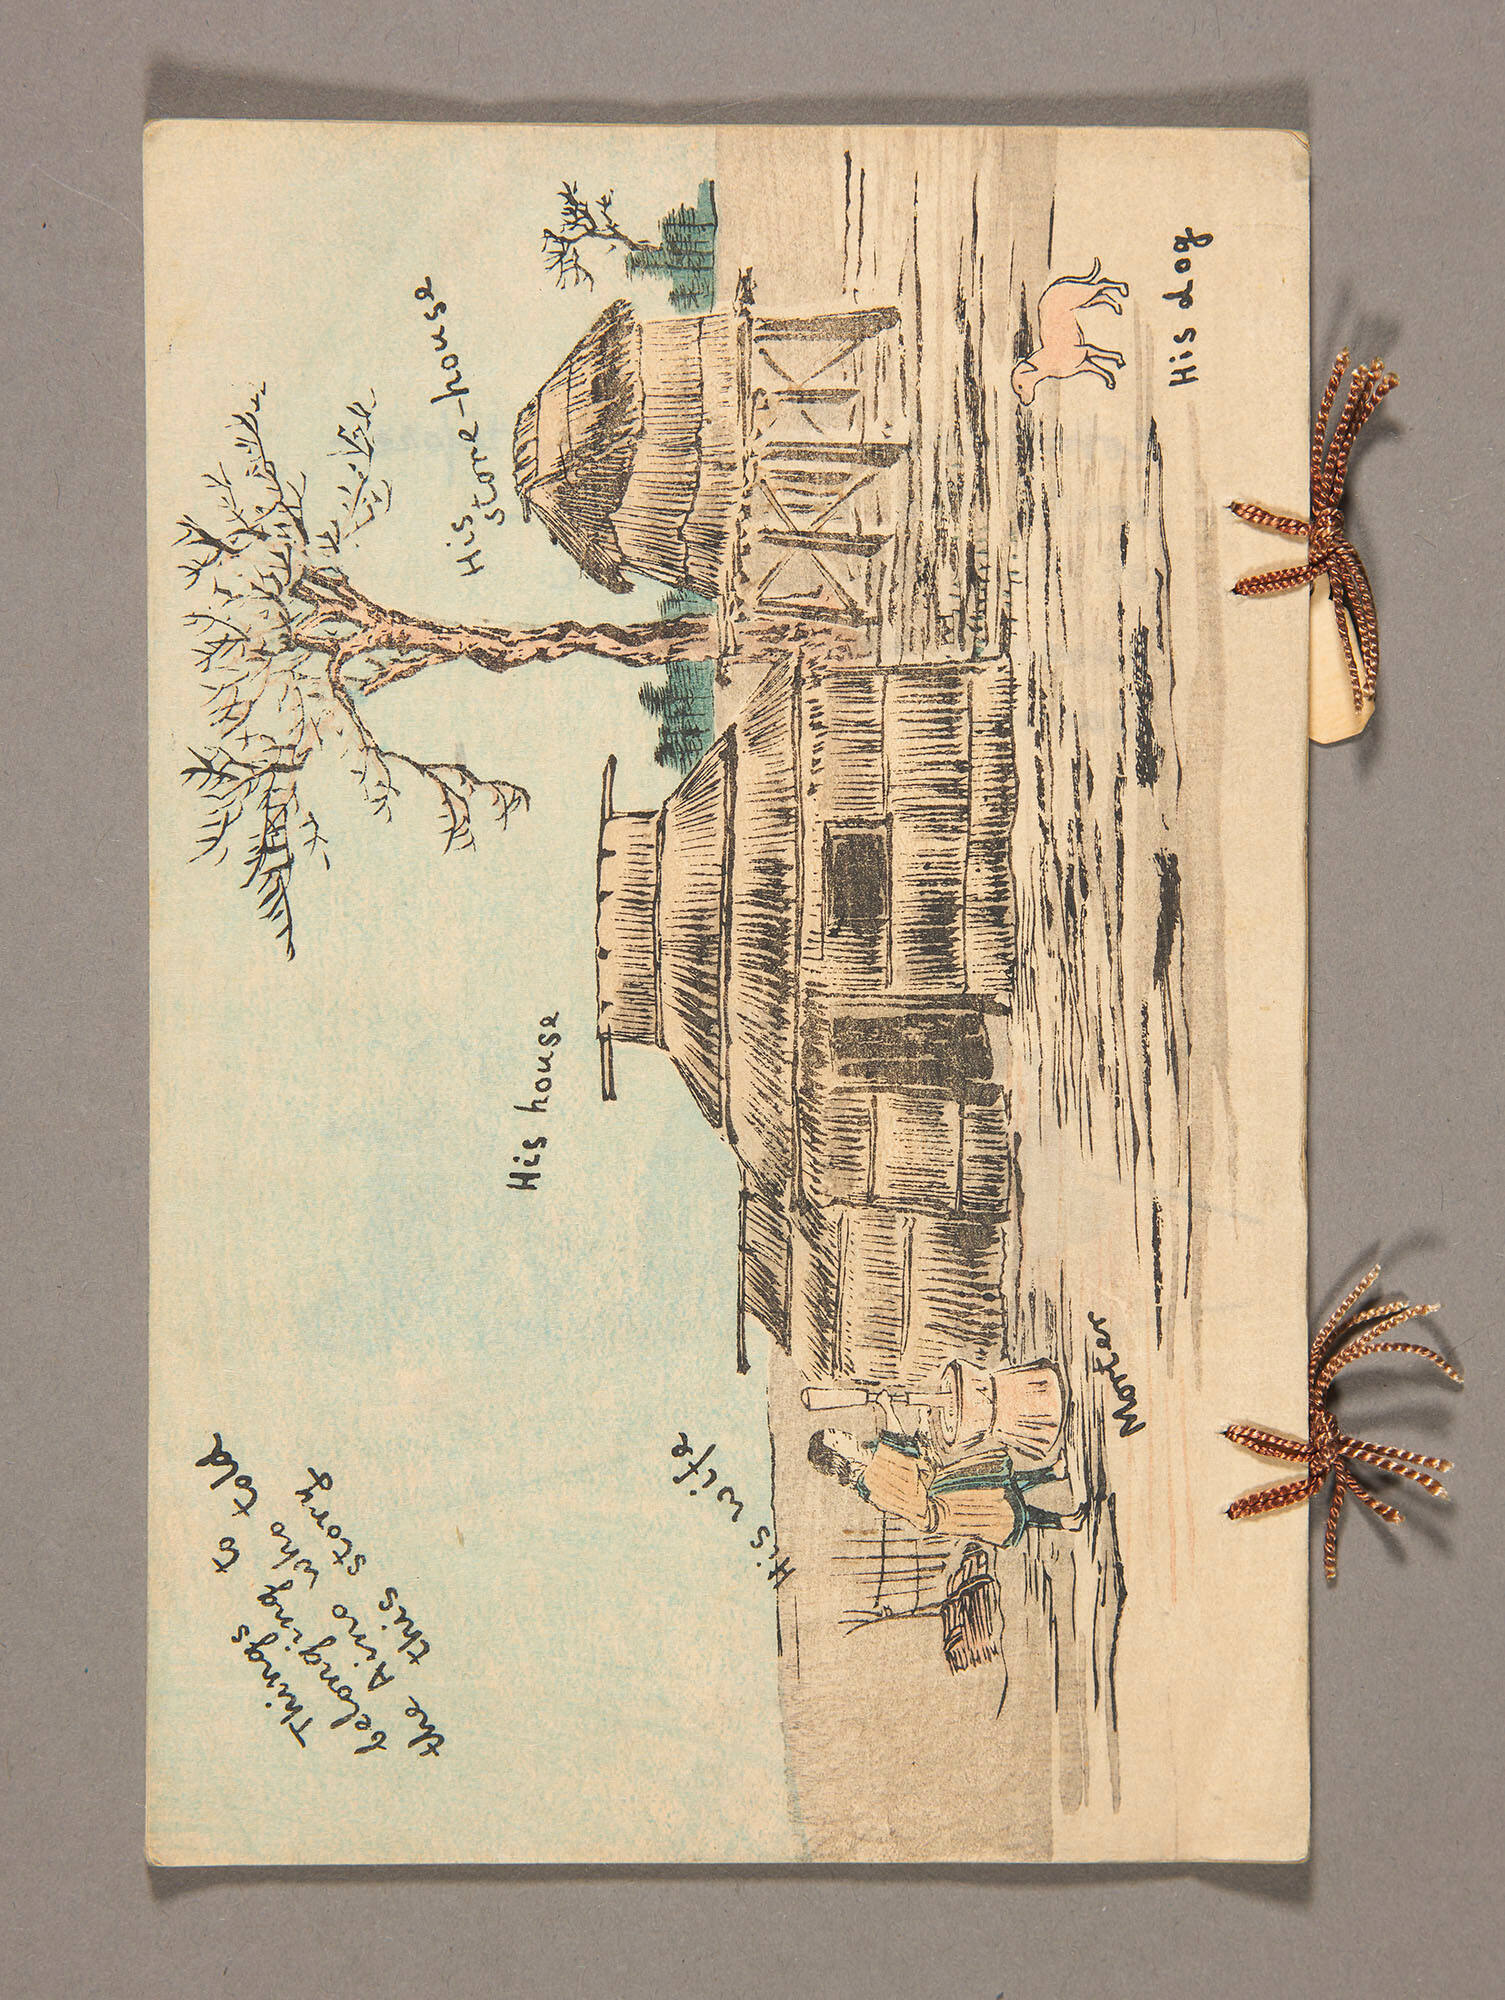 Things
belonging to
the Aino who told
this story
His house
His store-house
His wife
Morter
His dog